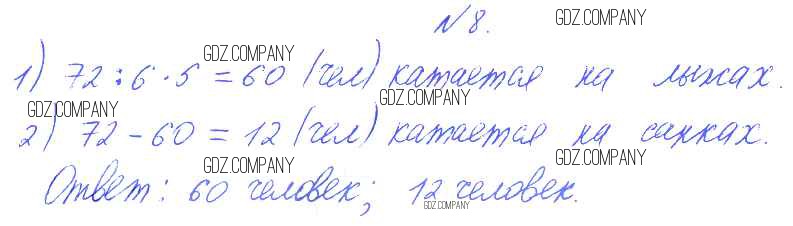 N8. GDZ.COMPANY
GDZ.COMPANY
1) 72 : 6 · 5 = 60 (чел) катается на лыжах.
GDZ.COMPANY GDZ.COMPANY
2) 72 - 60 = 12 (чел) катается на санках.
GDZ.COMPANY GDZ.COMPANY
Ответ: 60 человек; 12 человек.
GDZ.COMPANY